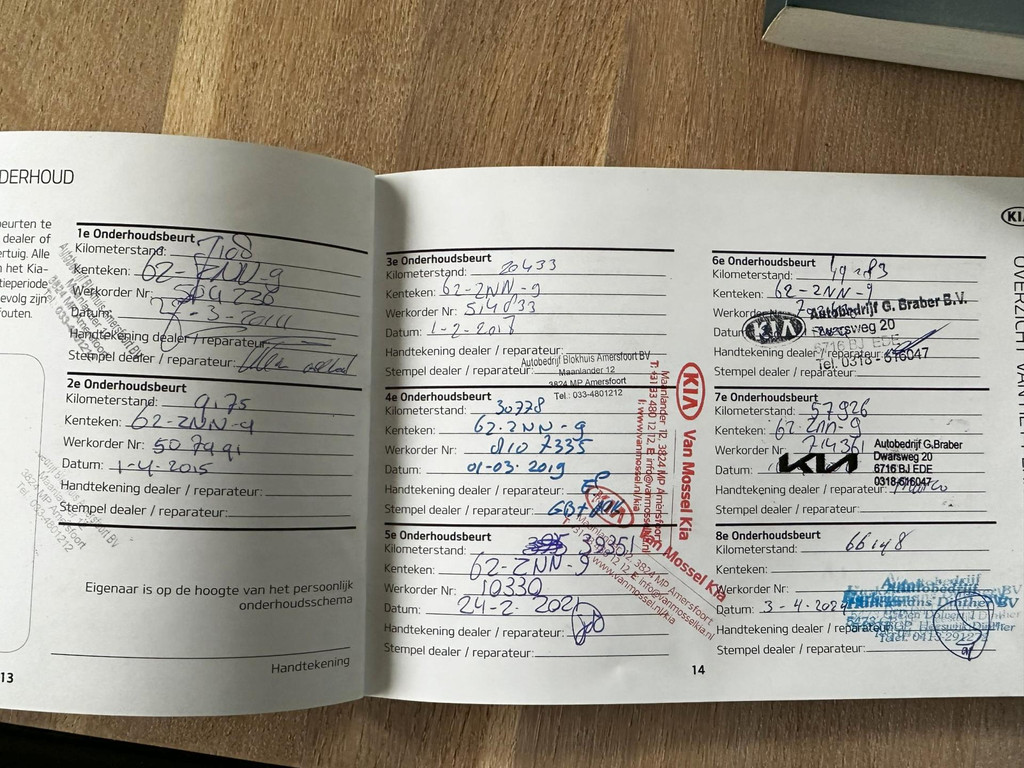 DERHOUD
beurten te
dealer of
ertuig. Alle
n het Kia-
tieperiode
evolg zijn
outen.
1e Onderhoudsbeurt
Kilometerstand: 7108
Kenteken: 62-ZNN-9
Werkorder Nr:
Datum:
Handtekening dealer / reparateur:
Stempel dealer / reparateur:
2e Onderhoudsbeurt
Kilometerstand:
Kenteken: 62-ZNN-9
Werkorder Nr: 507991
Datum: 1-4-2015
Handtekening dealer / reparateur:
Stempel dealer / reparateur:
Eigenaar is op de hoogte van het persoonlijk
onderhoudsschema
Handtekening
13
3e Onderhoudsbeurt
Kilometerstand: 20433
Kenteken: 62-ZNN-9
Werkorder Nr: 514833
Datum: 1-2-2018
Handtekening dealer / reparateur:
Stempel dealer / reparateur:
Autobedrijf Blokhuis Amersfoort BV
Maanlander 12
3824 MP Amersfoort
Tel.: 033-4801212
4e Onderhoudsbeurt
Kilometerstand: 30778
Kenteken: 62-ZNN-9
Werkorder Nr: 7335
Datum: 01-03-2019
Handtekening dealer / reparateur:
Stempel dealer / reparateur:
KIA Van Mossel Kia
Maanlander 12, 3824 MP Amersfoort
T: +31 33 480 12 12, E: info@vanmosselkia.nl
I: www.vanmossel.nl/kia
5e Onderhoudsbeurt
Kilometerstand: 39351
Kenteken: 62-ZNN-9
Werkorder Nr: 10330
Datum: 24-2-2021
Handtekening dealer / reparateur:
Stempel dealer / reparateur:
KIA Van Mossel Kia
14
KIA
6e Onderhoudsbeurt
Kilometerstand:
Kenteken: 62-ZNN-9
Werkorder
Datum:
Handtekening dealer / reparateur:
Stempel dealer / reparateur:
KIA Autobedrijf G. Braber B.V.
Dwarsweg 20
6716 BJ EDE
Tel. 0318 - 616047
7e Onderhoudsbeurt
Kilometerstand: 57926
Kenteken: 62-ZNN-9
Werkorder Nr: 214361
Datum:
Handtekening dealer / reparateur:
Stempel dealer / reparateur:
KIA Autobedrijf G.Braber
Dwarsweg 20
6716 BJ EDE
0318-616047
8e Onderhoudsbeurt
Kilometerstand: 66148
Kenteken:
Werkorder Nr:
Datum: 3-4-2024
Handtekening dealer / reparateur:
Stempel dealer / reparateur:
Autobedrijf